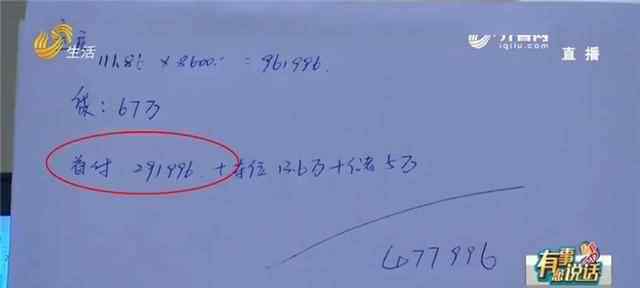 生活
齐鲁网
iqilu.com
直播
111.86 × 8600 = 961996.
贷：67万
首付 291996 + 车位 13.6万 + 储5万
477996
有事您说话